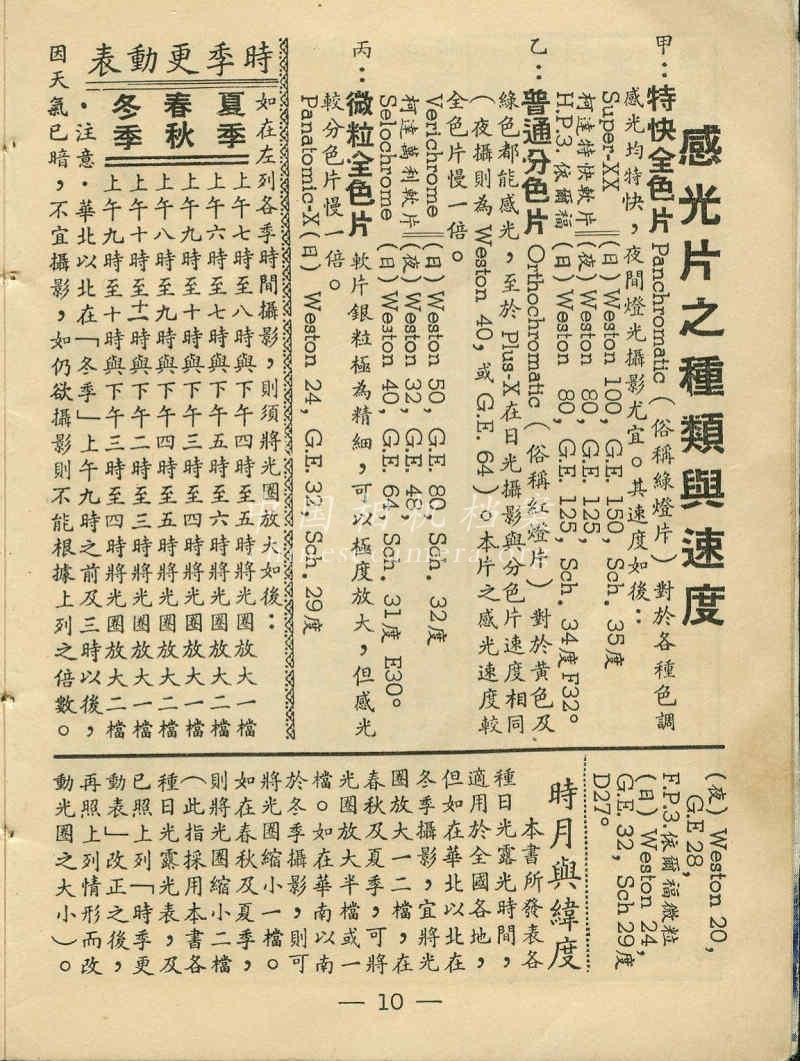 感光片之種類與速度
甲：特快全色片 Panchromatic（俗稱綠燈片）對於各種色調
感光均特快，夜間燈光攝影尤宜。其速度如後：
Super-XX (日) Weston 100, G.E. 150, Sch. 35度
柯達特快軟片 (夜) Weston 80, G.E. 125,
H.P.3 依爾福 (日) Weston 80, G.E. 125, Sch. 34度F32°
乙：普通分色片 Orthochromatic（俗稱紅燈片）對於黃色及
綠色都能感光，至於 Plus-X 在日光攝影與分色片速度相同
（夜攝則為 Weston 40, 或 G.E. 64）。本片之感光速度較
全色片慢一倍。
Verichrome (日) Weston 50, G.E 80, Sch. 32度
柯達萬利軟片 (夜) Weston 32, G.E. 48,
Selochrome (日) Weston 40, G.E. 64, Sch. 31度 E30°
丙：微粒全色片 軟片銀粒極為精細，可以極度放大，但感光
較分色片慢一倍。
Panatomic-X (日) Weston 24, G.E. 32, Sch. 29度
(夜) Weston 20,
G.E 28,
F.P.3.依爾福微粒
(日) Weston 24,
G.E. 32, Sch 29度
D27°
時季更動表
如在左列各季時間攝影，則須將光圈放大如後：
夏季
上午七時至八時與下午四時至五時將光圈放大一檔
上午六時至七時與下午五時至六時將光圈放大二檔
春秋
上午九時至十時與下午三時至四時將光圈放大一檔
上午八時至九時與下午四時至五時將光圈放大二檔
冬季
上午十時至十一時與下午二時至三時將光圈放大一檔
上午九時至十時與下午三時至四時將光圈放大二檔
・注意・華北以北在「冬季」上午九時之前及三時以後，
因天氣已暗，不宜攝影，如仍欲攝影則不能根據上列之倍數。
時月與緯度
本書所發表各
種日光露光時間，
適用於全國各地，
但如在華北以北在
冬季攝影，宜將光
圈放大一二檔，在
春秋及夏季，可將
光圈放大半檔或一
檔。如在華南以南
於冬季攝影，則可
將光圈縮小一檔。
如在春秋及夏季，
則將光圈縮小二檔
（此指採用本書各
種日光露光表，及
已照上列「時季更
動表」改正之後，
再照上列情形而改
動光圈之大小）。
— 10 —